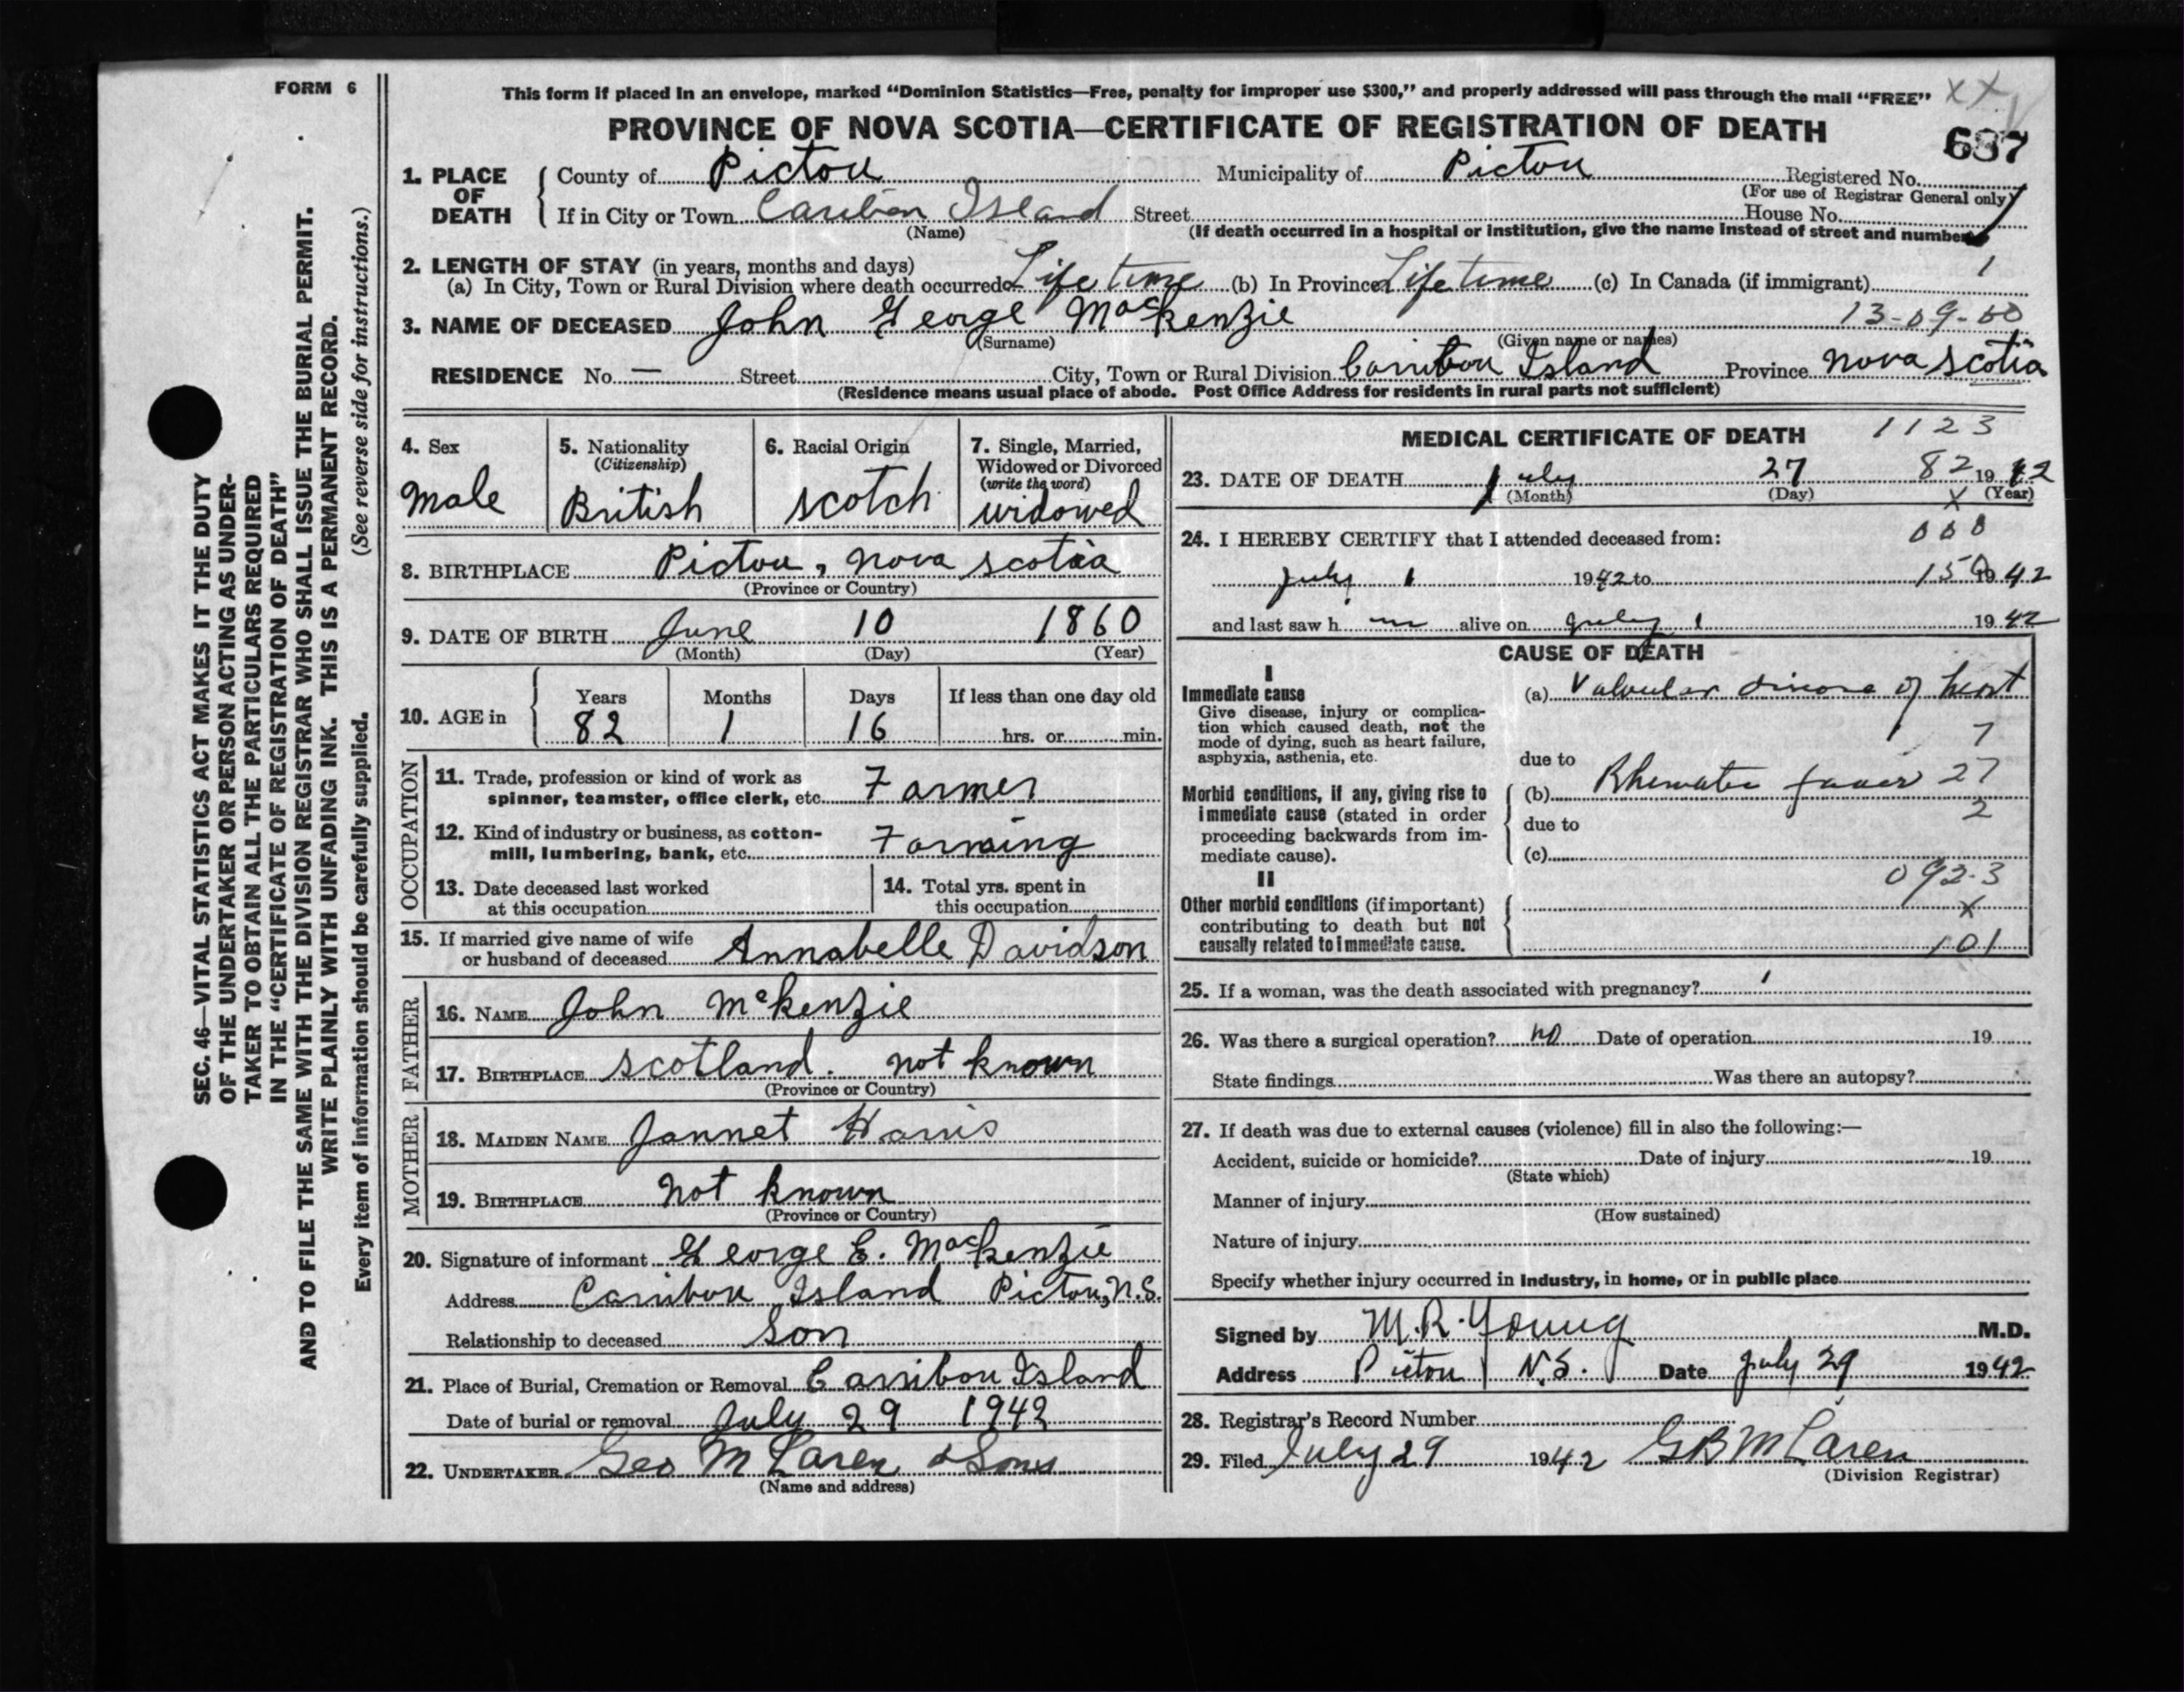 FORM 6
This form if placed in an envelope, marked "Dominion Statistics—Free, penalty for improper use $300," and properly addressed will pass through the mail "FREE" XX
PROVINCE OF NOVA SCOTIA—CERTIFICATE OF REGISTRATION OF DEATH
687
1. PLACE OF DEATH
County of Pictou Municipality of Pictou Registered No.
(For use of Registrar General only)
If in City or Town Cariboo Island Street House No.
(Name) (If death occurred in a hospital or institution, give the name instead of street and number)
2. LENGTH OF STAY (in years, months and days)
(a) In City, Town or Rural Division where death occurred Life time (b) In Province Life time (c) In Canada (if immigrant) 1
3. NAME OF DECEASED John George MacKenzie 13-09-60
(Surname) (Given name or names)
RESIDENCE No. — Street City, Town or Rural Division Carribou Island Province Nova Scotia
(Residence means usual place of abode. Post Office Address for residents in rural parts not sufficient)
4. Sex
Male
5. Nationality
(Citizenship)
British
6. Racial Origin
Scotch
7. Single, Married,
Widowed or Divorced
(write the word)
widowed
8. BIRTHPLACE Pictou, Nova Scotia
(Province or Country)
9. DATE OF BIRTH June 10 1860
(Month) (Day) (Year)
10. AGE in
Years Months Days If less than one day old
82 1 16 hrs. or min.
OCCUPATION
11. Trade, profession or kind of work as
spinner, teamster, office clerk, etc. Farmer
12. Kind of industry or business, as cotton-
mill, lumbering, bank, etc. Farming
13. Date deceased last worked
at this occupation
14. Total yrs. spent in
this occupation
15. If married give name of wife
or husband of deceased Annabelle Davidson
FATHER
16. NAME John McKenzie
17. BIRTHPLACE Scotland. not known
(Province or Country)
MOTHER
18. MAIDEN NAME Jannet Harris
19. BIRTHPLACE Not known
(Province or Country)
20. Signature of informant George E. MacKenzie
Address Carribou Island Pictou, N.S.
Relationship to deceased Son
21. Place of Burial, Cremation or Removal Carribou Island
Date of burial or removal July 29 1942
22. UNDERTAKER Geo McLaren & Sons
(Name and address)
MEDICAL CERTIFICATE OF DEATH 1123
23. DATE OF DEATH July 27 82 1942
(Month) (Day) X (Year)
24. I HEREBY CERTIFY that I attended deceased from:
July 1 1942 to 1942
and last saw h m alive on July 1 1942
CAUSE OF DEATH
I
Immediate cause
Give disease, injury or complica-
tion which caused death, not the
mode of dying, such as heart failure,
asphyxia, asthenia, etc.
(a) Valvular disease of heart
7
due to
Morbid conditions, if any, giving rise to
immediate cause (stated in order
proceeding backwards from im-
mediate cause).
(b) Rheumatic fever 27
2
due to
(c)
II
Other morbid conditions (if important)
contributing to death but not
causally related to immediate cause.
092-3
X
101
25. If a woman, was the death associated with pregnancy?
26. Was there a surgical operation? no Date of operation 19
State findings Was there an autopsy?
27. If death was due to external causes (violence) fill in also the following:—
Accident, suicide or homicide? Date of injury 19
(State which)
Manner of injury
(How sustained)
Nature of injury
Specify whether injury occurred in industry, in home, or in public place
Signed by M.R. Young M.D.
Address Pictou N.S. Date July 29 1942
28. Registrar's Record Number
29. Filed July 29 1942 GB McLaren
(Division Registrar)
SEC. 46—VITAL STATISTICS ACT MAKES IT THE DUTY
OF THE UNDERTAKER OR PERSON ACTING AS UNDER-
TAKER TO OBTAIN ALL THE PARTICULARS REQUIRED
IN THE "CERTIFICATE OF REGISTRATION OF DEATH"
AND TO FILE THE SAME WITH THE DIVISION REGISTRAR WHO SHALL ISSUE THE BURIAL PERMIT.
WRITE PLAINLY WITH UNFADING INK. THIS IS A PERMANENT RECORD.
Every item of information should be carefully supplied. (See reverse side for instructions.)